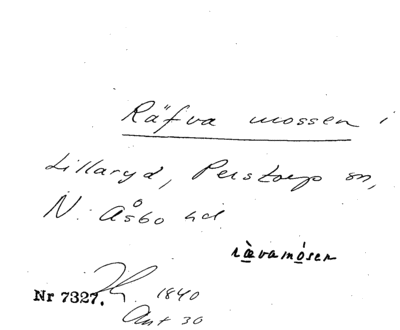 Räfva mossen i
Lillaryd, Perstorp sn,
N. Åsbo hd.
rävamósen
Nr 7327. 1840
Akt 30